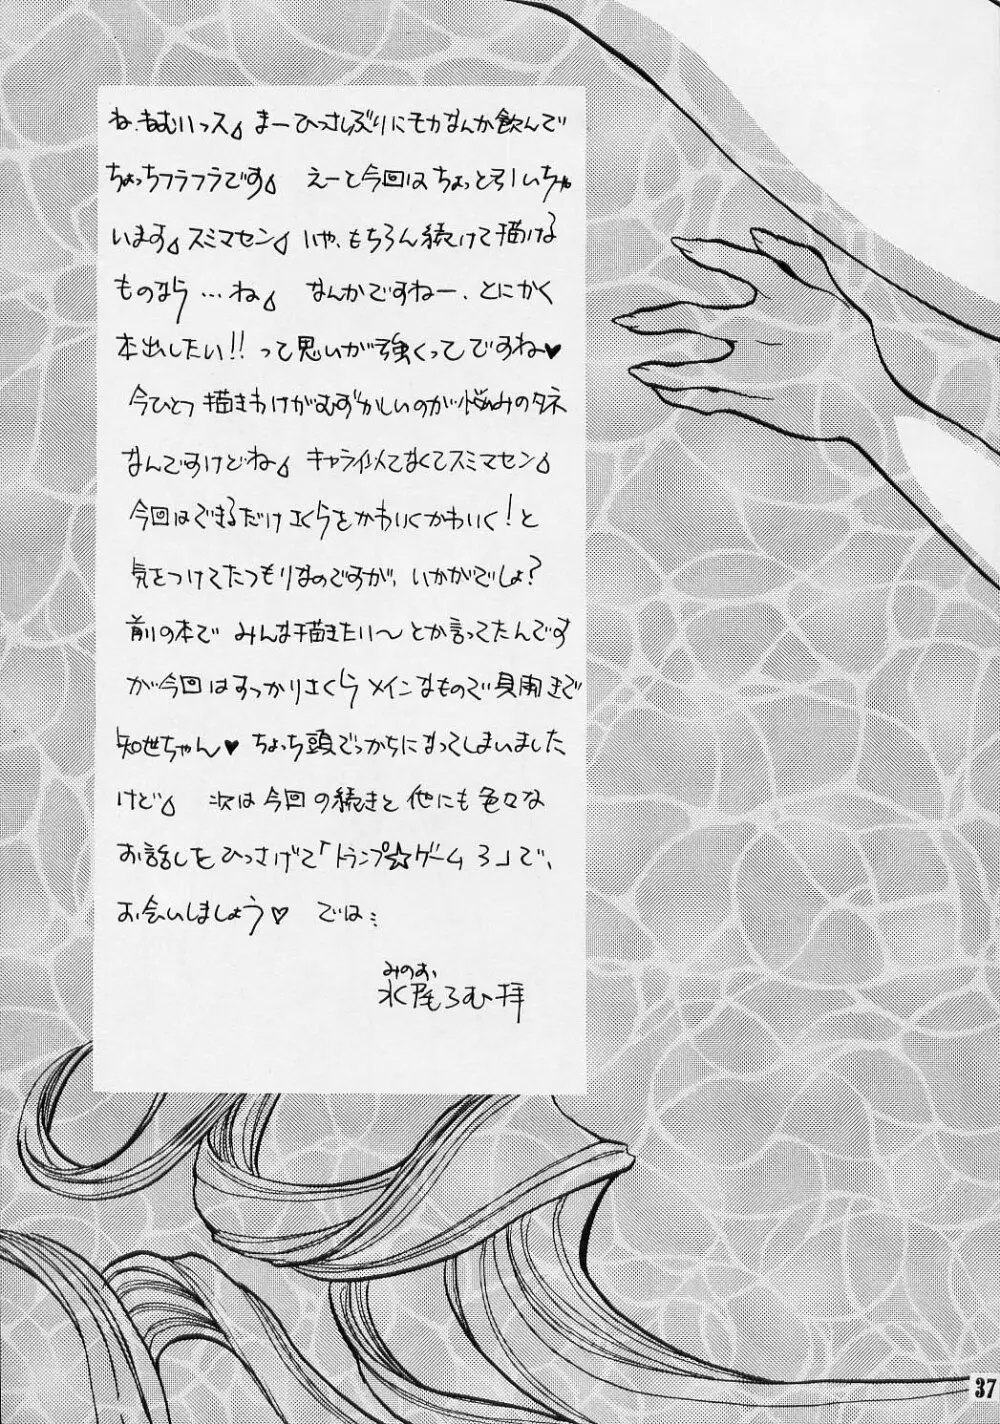 ね、ねむいっス♪ まーひっさしぶりにモカなんか飲んで
ちょっちフラフラです♪ えーと今回はちょっと引いちゃ
います♪スミマセン♪ いや、もちろん続けて描ける
ものなら…ね♪ なんかですねー、とにかく
本出したい!!って思いが強くってですね♥
今ひとつ描きわけがむずかしいのが悩みのタネ
なんですけどね♪ キャラ似てなくてスミマセン♪
今回はできるだけさくらをかわいくかわいく!と
気をつけてたつもりなのですが、いかがでしょ?
前の本でみんな描きたい〜とか言ってたんです
が今回はすっかりさくらメインなもので見開きで
知世ちゃん♥ ちょっち頭でっかちになってしまいました
けど♪ 次は今回の続きと他にも色々な
お話しをひっさげて「トランプ☆ゲーム3」で、
お会いしましょう♡ では…
みのお
水尾ろむ拝
37